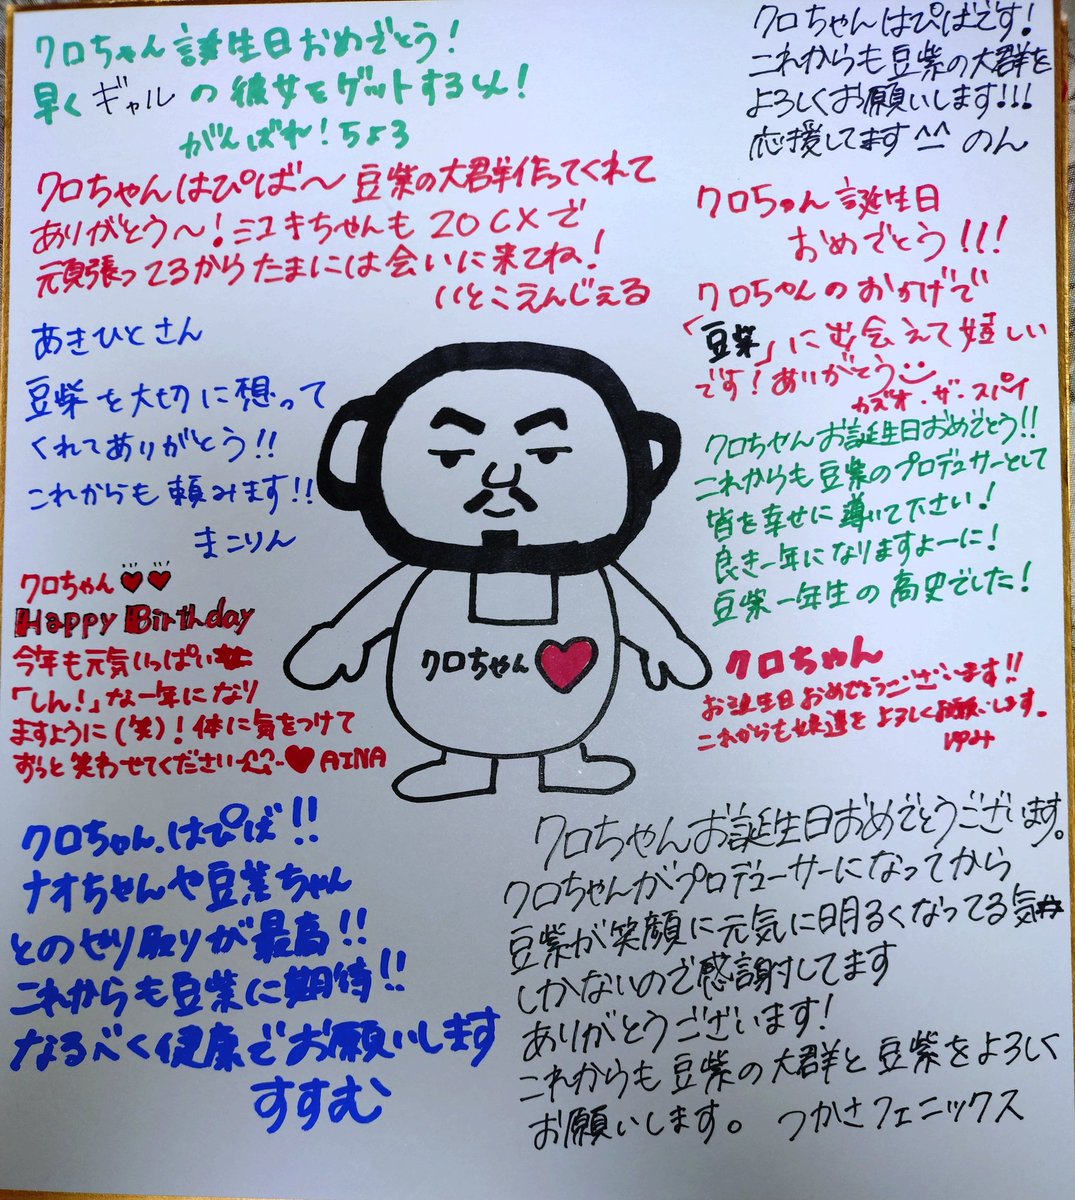 クロちゃん誕生日おめでとう！
早くギャルの彼女をゲットするしん！
がんばれ！ちょろ
クロちゃんはぴば〜豆柴の大群作ってくれて
ありがとう〜！ミユキちゃんも20CXで
頑張ってるからたまには会いに来てね！
いとこえんじぇる
あきひとさん
豆柴を大切に想って
くれてありがとう!!
これからも頼みます!!
まこりん
クロちゃん
Happy Birthday
今年も元気いっぱい
「しん！」な一年になり
ますように(笑)！体に気をつけて
ずっと笑わせてください
AINA
クロちゃん、はぴば!!
ナオちゃんや豆柴ちゃん
とのやり取りが最高!!
これからも豆柴に期待!!
なるべく健康でお願いします
すすむ
クロちゃんはぴばです！
これからも豆柴の大群を
よろしくお願いします!!!
応援してます^^ のん
クロちゃん誕生日
おめでとう!!!
クロちゃんのおかげで
「豆柴」に出会えて嬉しい
です！ありがとう
カズオ・ザ・スパイ
クロちゃんお誕生日おめでとう!!
これからも豆柴のプロデュサーとして
皆を幸せに導いて下さい！
良き一年になりますよーに！
豆柴一年生の高史でした！
クロちゃん
お誕生日おめでとうございます!!
これからも娘達をよろしくお願いします。
ゆみ
クロちゃん
クロちゃんお誕生日おめでとうございます。
クロちゃんがプロデューサーになってから
豆柴が笑顔に元気に明るくなってる気
しかないので感謝してます
ありがとうございます！
これからも豆柴の大群と豆柴をよろしく
お願いします。 つかさフェニックス